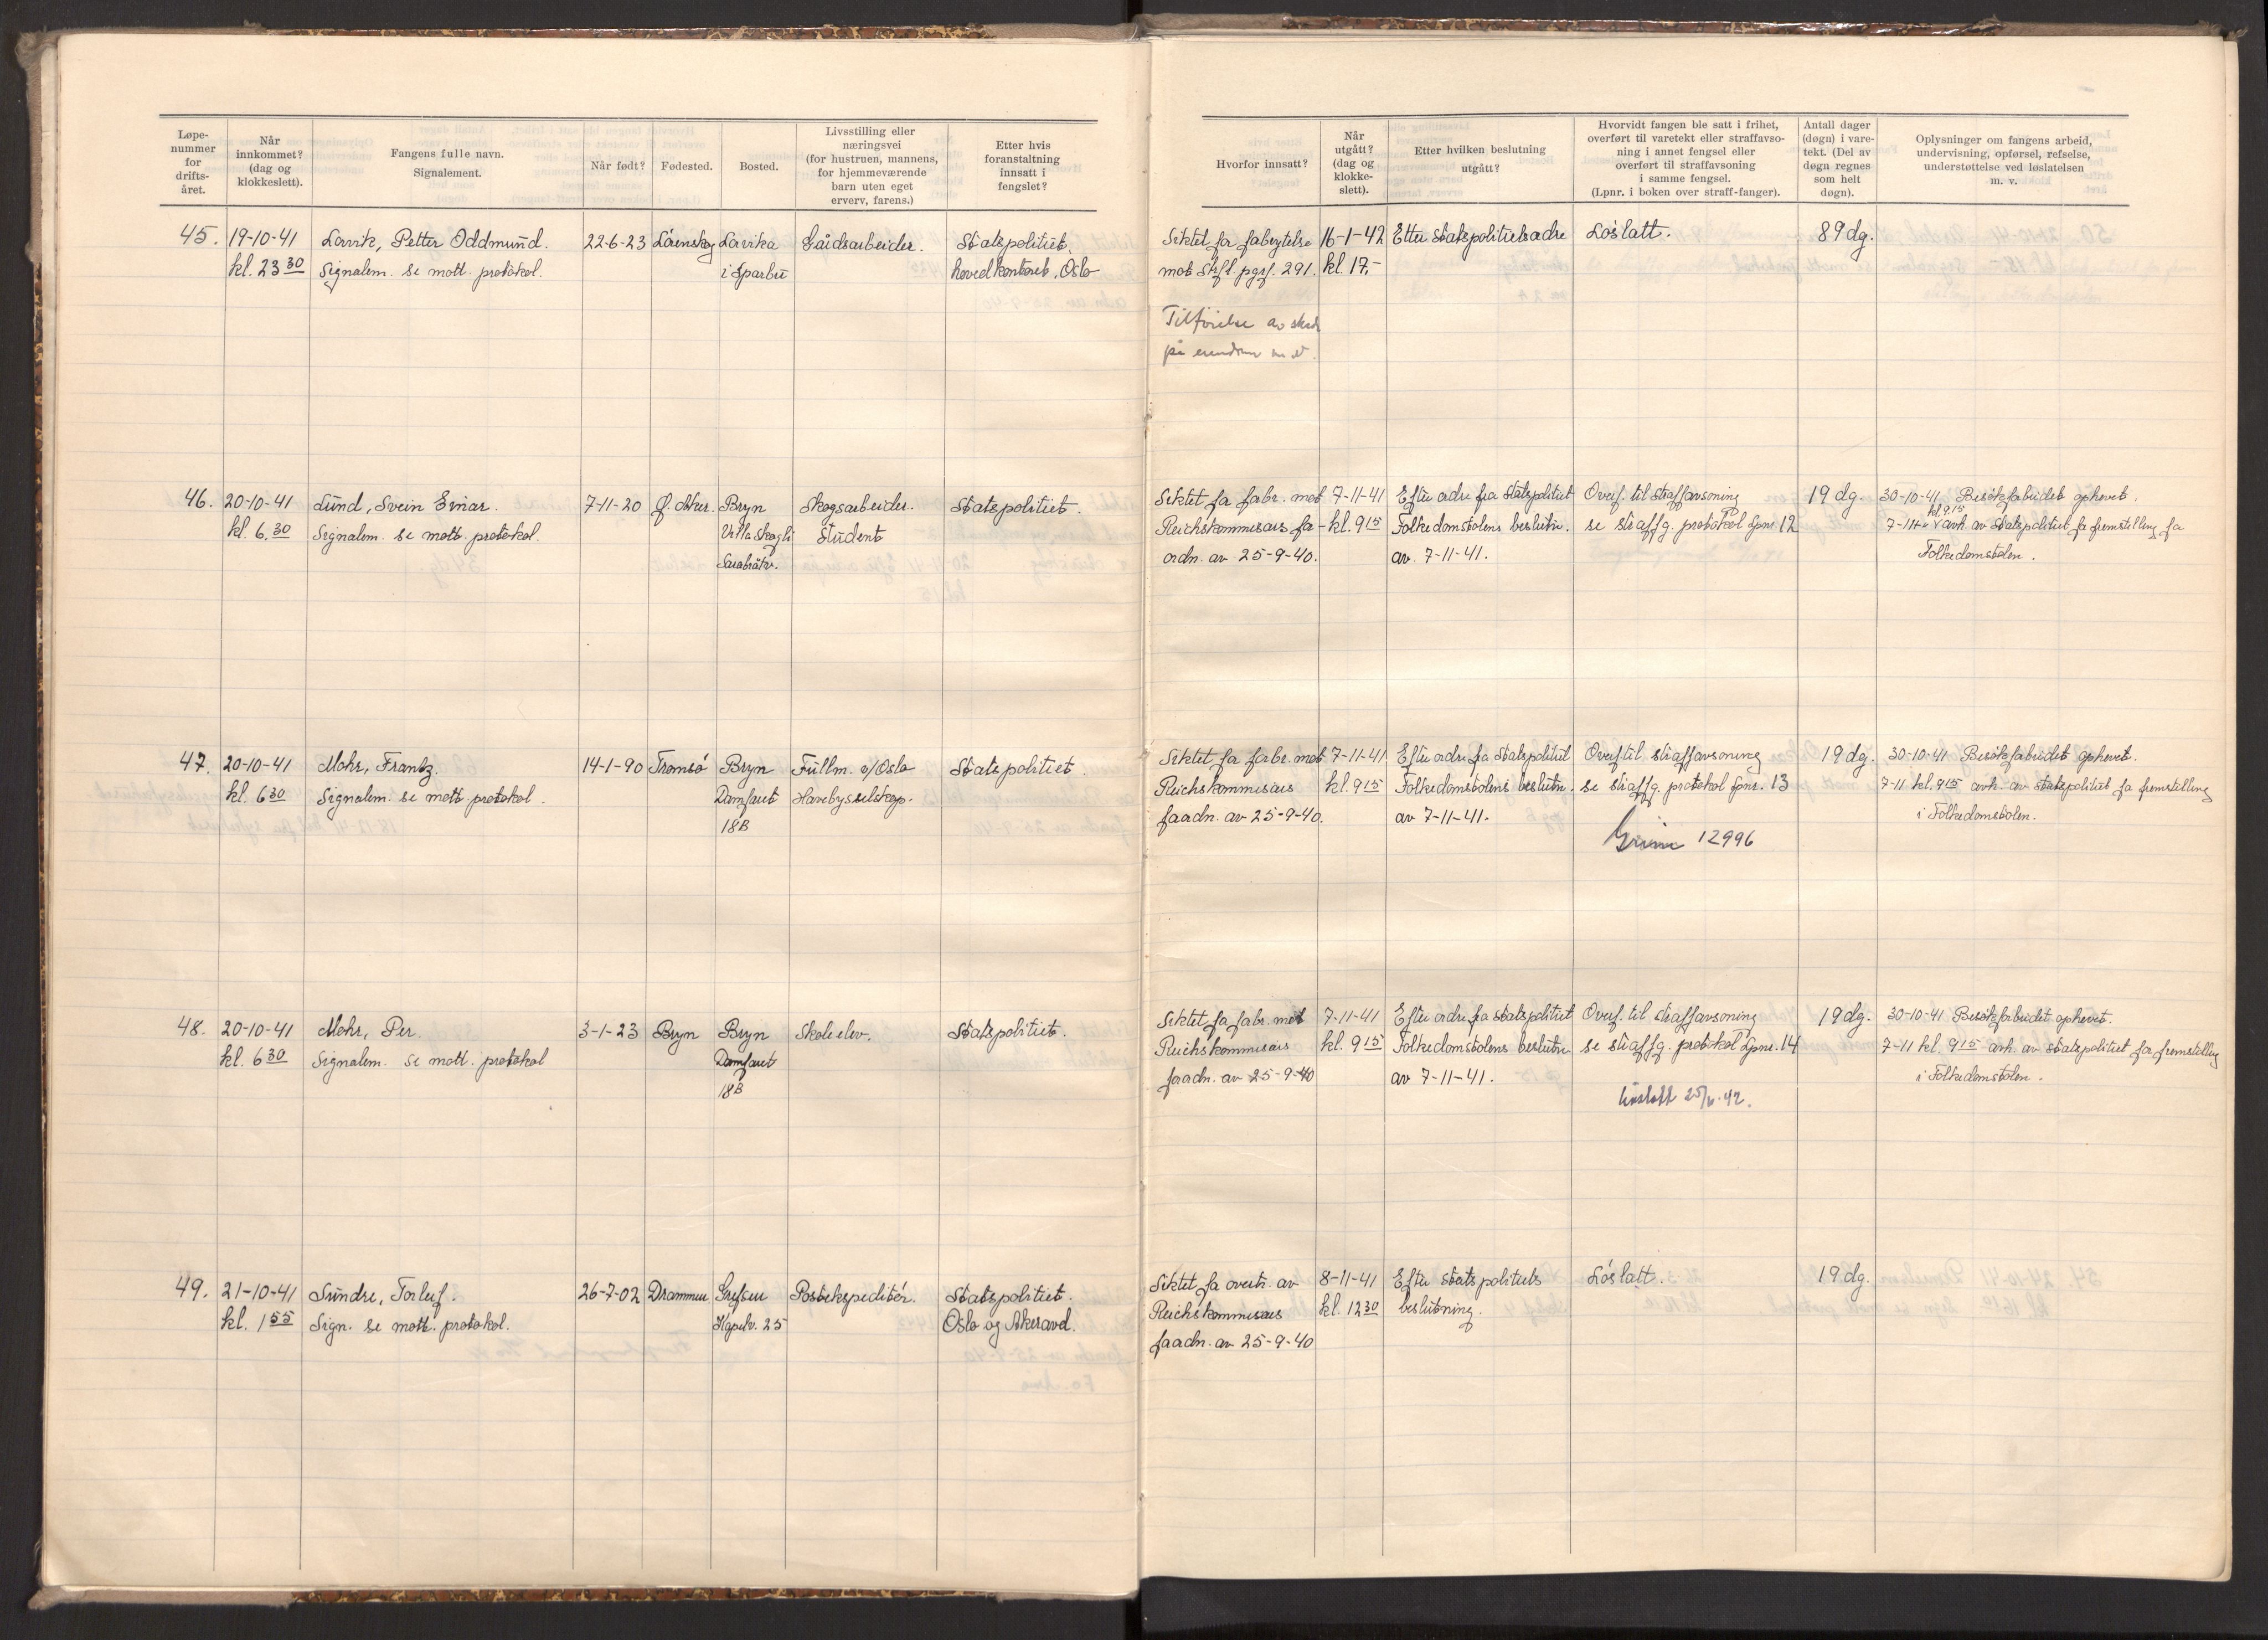 Løpe-
nummer
for
drifts-
året.
Når
innkommet?
(dag og
klokkeslett).
Fangens fulle navn.
Signalement.
Når født?
Fødested.
Bosted.
Livsstilling eller
næringsvei
(for hustruen, mannens,
for hjemmeværende
barn uten eget
erverv, farens.)
Etter hvis
foranstaltning
innsatt i
fengslet?
Hvorfor innsatt?
Når
utgått?
(dag og
klokke-
slett).
Etter hvilken beslutning
utgått?
Hvorvidt fangen ble satt i frihet,
overført til varetekt eller straffavso-
ning i annet fengsel eller
overført til straffavsoning
i samme fengsel.
(Lpnr. i boken over straff-fanger).
Antall dager
(døgn) i vare-
tekt. (Del av
døgn regnes
som helt
døgn).
Oplysninger om fangens arbeid,
undervisning, opførsel, refselse,
understøttelse ved løslatelsen
m. v.
45.
19-10-41
kl. 23 30
Lorvik, Petter Oddmund.
Signalem. se mott. protokol.
22-6-23
Lörenskog
Lorvika
i Sparbu
Gårdsarbeider.
Statspolitiet.
hovedkontoret, Oslo
Siktet for forbrytelse
mot Strfl. pgrf. 291.
Tilföielse av skade
på eiendom m.v.
16-1-42
kl. 17.-
Etter Statspolitiets ordre
Löslatt.
89 dg.
46.
20-10-41
kl. 6.30
Lund, Svein Einar.
Signalem. se mott. protokol.
7-11-20
Ø. Aker.
Bryn
Villa Skogli
Sarabråtv.
Skogsarbeider.
Student
Statspolitiet.
Siktet for forbr. mot
Reichskommisars for-
ordn. av 25-9-40.
7-11-41
kl. 9 15
Efter ordre fra Statspolitiet
Folkedomstolens beslutn.
av. 7-11-41.
Overf. til straffavsoning
se straffg. protokol Lpnr. 12
19 dg.
30-10-41 Besökforbudet ophevet.
kl. 9.15
7-11-41 avh. av Statspolitiet for fremstilling for
Folkedomstolen.
47.
20-10-41
kl. 6 30
Mohr, Frantz.
Signalem. se mott protokol.
14-1-90
Tromsö
Bryn
Damfaret
18B
Fullm. v/Oslo
Havebyselskap.
Statspolitiet.
Siktet for forbr. mot
Reichskommisars
forordn. av 25-9-40.
7-11-41
kl. 9 15
Efter ordre fra Statspolitiet
Folkedomstolens beslutn.
av 7-11-41.
Overf til straffavsoning
se straffg. protokol Lpnr. 13
Grini 12996
19 dg.
30-10-41 Besökforbudet ophevet.
7-11 kl. 9 15 avh. av Statspolitiet for fremstilling
i Folkedomstolen.
48.
20-10-41
kl. 6 30
Mohr, Per.
Signalem. se mott. protokol
3-1-23
Bryn
Bryn
Damfaret
18B
Skoleelev.
Statspolitiet.
Siktet for forbr. mot
Reichskommisars
forordn. av 25-9-40
7-11-41
kl. 9 15
Efter ordre fra statspolitiet
Folkedomstolens beslutn
av 7-11-41.
Overf. til straffavsoning
se straffg. protokol Lpnr. 14
Löslatt 25/6-42.
19 dg.
30-10-41 Besökforbudet ophevet.
7-11 kl. 9 15 avh. av Statspolitiet for fremstilling
i Folkedomstolen.
49.
21-10-41
kl. 1 55
Sundre, Torleif.
Sign. se mott. protokol.
26-7-02
Drammen
Grefsen
Kapelv. 25
Postekspeditör.
Statspolitiet.
Oslo og Akeravd.
Siktet for overtr. av
Reichskommisars
forordn. av 25-9-40
8-11-41
kl. 12 30
Efter Statspolitiets
beslutning.
Löslatt.
19 dg.